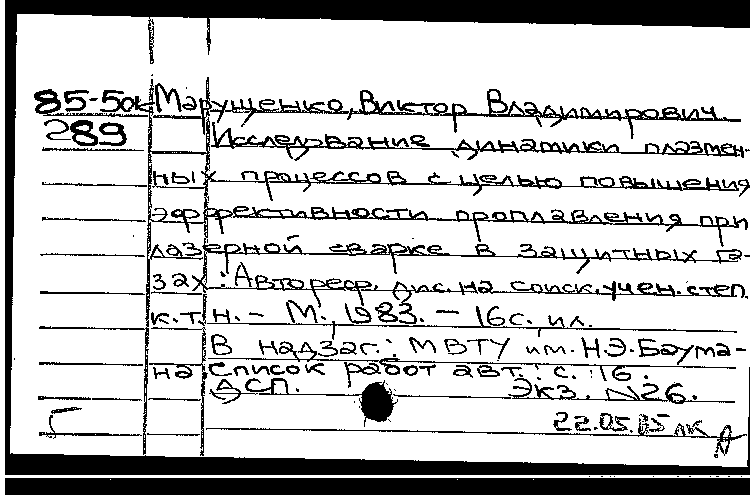 85-5ок Марущенко, Виктор Владимирович.
289 Исследование динамики плазмен-
ных процессов с целью повышения
эффективности проплавления при
лазерной сварке в защитных га-
зах: Автореф. дис. на соиск. учен. степ.
к.т.н. - М., 1983. - 16с., ил.
В надзаг.: МВТУ им. Н.Э. Баума-
на. Список работ авт.: с. 16.
ДСП. Экз. №26.
22.05.85 лк